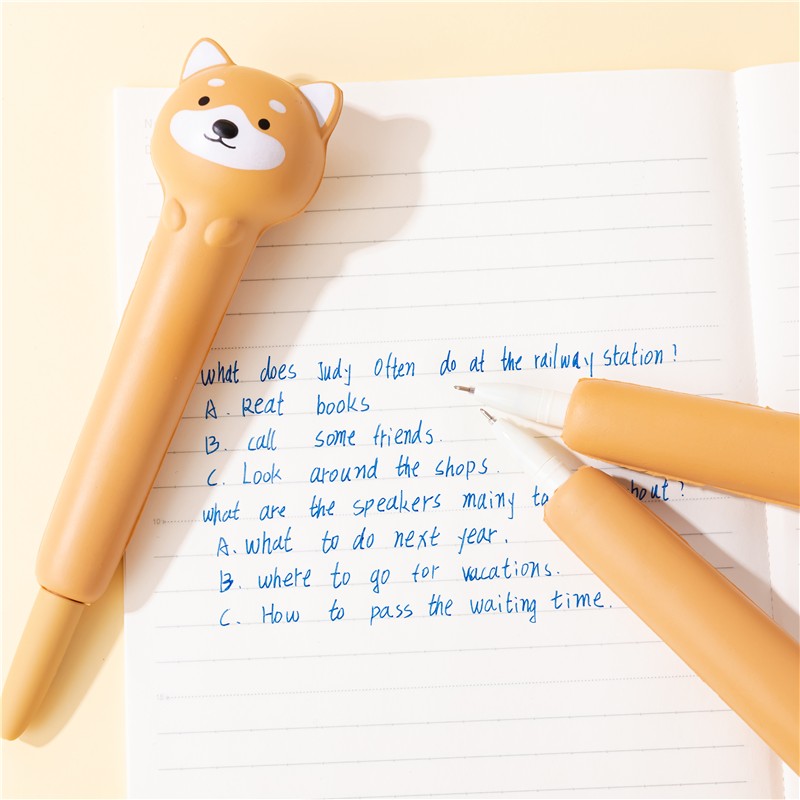 What does Judy Often do at the railway station?
A. Reat books
B. call some friends.
C. Look around the shops.
what are the speakers mainy ta bout?
A. what to do next year.
B. where to go for vacations.
C. How to pass the waiting time.
10